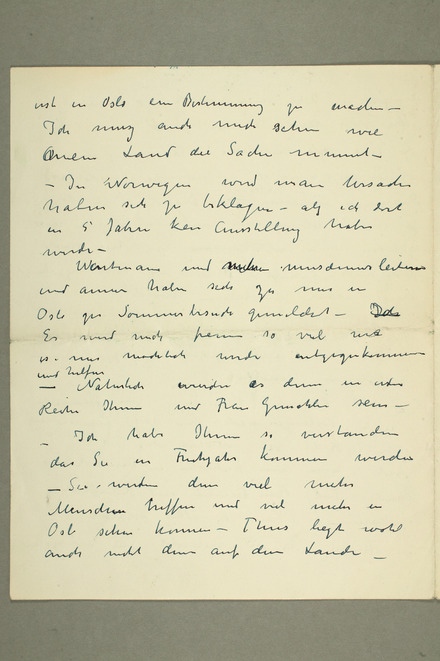 erst in Oslo eine Bestimmung zu machen —
Ich muss auch noch sehen wie
mein Land die Sache nimmt —
— In Norwegen wird man Ursache
haben sich zu beklagen — als ich erst
in 5 Jahren kein Ausstellung habe
würde —
und museumsleiteren
und annen habe sich zu uns in
Oslo zu Sommerbesuch gemeldet —
Es wird mich freuen so viel wie
es mir möglich würde entgegenkommen
und helfen
— Natürlich würden es denn in erste
Reihe Ihnen und Frau Gemahlin sein —
— Ich habe Ihnen so verstanden
das Sie in Frühjahr kommen werden
— Sie werden dann viel mehr
Menschen treffen und viel mehr in
Oslo sehen können — Thiis liegt wohl
auch nicht dann auf dem Lande —